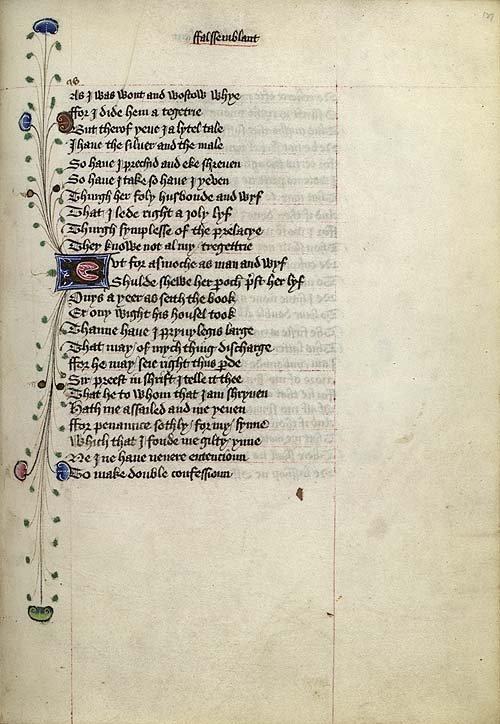 ffalssemblant
As I was wont and wostow whye
ffor I dide hem a tegetrie
But therof yeve I a lytel tale
I have the silver and the male
So have I prechid and eke shreven
So have I take so have I yeven
Thurgh her foly husbonde and wyf
That I lede right a joly lyf
Thurgh symplesse of the prelacye
They knowe not al my tregettrie
But for asmoche as man and wyf
Shulde shewe her poch pſt her lyf
Onys a yeer as seith the book
Er ony wight his housel took
Thanne have I pryvylegis large
That may / of mych thing discharge
ffor he may seie right thus pde
Sir preest in shrift I telle it thee
That he to whom that I am shryven
Hath me assoiled and me yeven
ffor penaunce sothly / for my synne
Which that I fonde me gilty ynne
Ne I ne have nevere entencioun
To make double confessioun